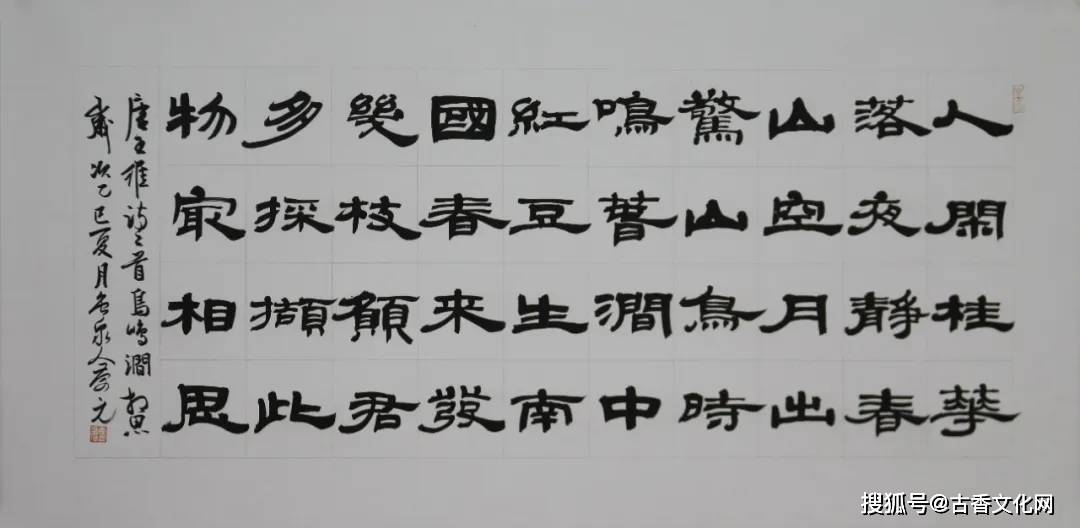 人閑桂華
落夜靜春
山空月出
驚山鳥時
鳴萅澗中
紅豆生南
國春来發
幾枝願君
多採擷此
物冣相思
唐王維詩二首鳥鳴澗相思
歲次乙巳夏月泉人元
搜狐号@古香文化网